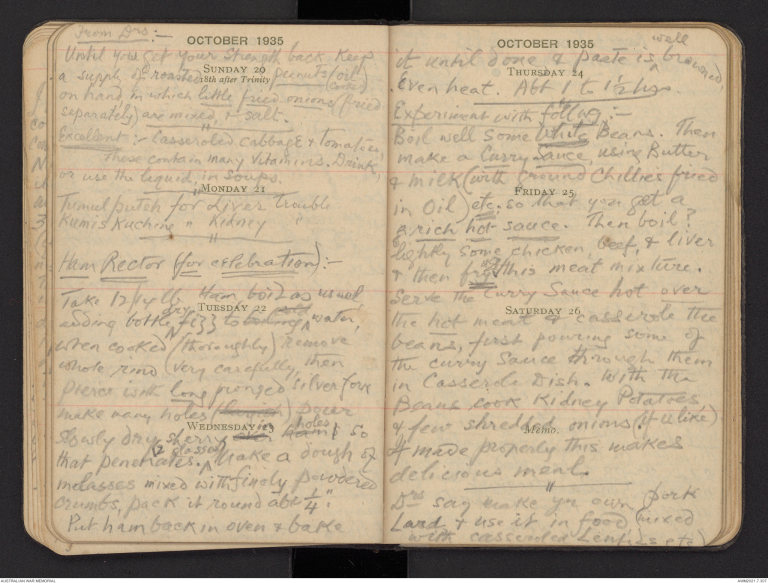 From Drs:-
OCTOBER 1935
Until you get your strength back keep
SUNDAY 20
a supply of roasted peanuts (oil)
18th after Trinity
(cooked)
on hand, in which little fried onions (fried
separately) are mixed, & salt.
Excellent:- Casseroled cabbage & tomatoes,
these contain many vitamins. Drink,
or use the liquid, in soups.
MONDAY 21
Tumul putch for Liver trouble
Kumis Kuching " Kidney "
Ham Rector (for celebration):-
Take 12/14 lb Ham, boil as usual
TUESDAY 22
adding bottle to water,
when cooked (thoroughly) remove
whole rind very carefully, then
pierce with long pronged silver fork
make many holes pour
WEDNESDAY 23
holes
slowly dry sherry so
(2 glasses)
that penetrates. Make a dough of
molasses mixed with finely powdered
crumbs, pack it round abt 1/4".
Put ham back in oven & bake
OCTOBER 1935
well
it until done & paste is browned,
THURSDAY 24
even heat. Abt 1 to 1½ hrs.
Experiment with follwg:-
Boil well some White Beans. Then
make a Curry Sauce, using Butter
& milk (with ground chillies fried
FRIDAY 25
in oil) etc. so that you get a
a rich hot sauce. Then boil?
lightly some chicken beef, & liver
& then fry this meat mixture.
Serve the Curry Sauce hot over
SATURDAY 26
the hot meat & casserole the
beans, first pouring some of
the curry sauce through them
in Casserole Dish. With the
Beans cook Kidney Potatoes,
& few shredded onions (if U like)
Memo.
If made properly this makes
delicious meal.
Drs say make yr own pork
Lard & use it in food (mixed
with casseroled Lentils etc)
AUSTRALIAN WAR MEMORIAL